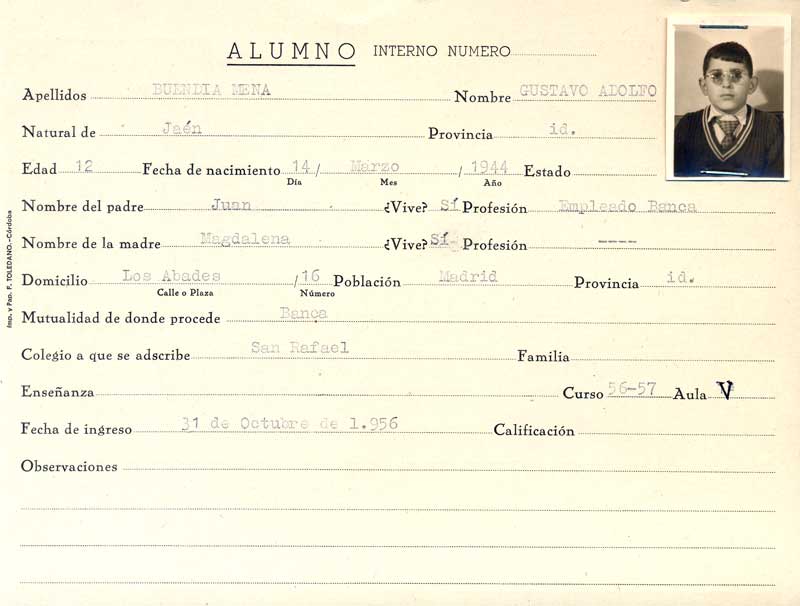 ALUMNO INTERNO NUMERO
Apellidos BUENDIA MENA Nombre GUSTAVO ADOLFO
Natural de Jaén Provincia id.
Edad 12 Fecha de nacimiento 14 / Marzo / 1944 Estado
Día Mes Año
Nombre del padre Juan ¿Vive? Sí Profesión Empleado Banca
Nombre de la madre Magdalena ¿Vive? Sí Profesión ----
Domicilio Los Abades / 16 Población Madrid Provincia id.
Calle o Plaza Número
Mutualidad de donde procede Banca
Colegio a que se adscribe San Rafael Familia
Enseñanza Curso 56-57 Aula V
Fecha de ingreso 31 de Octubre de 1.956 Calificación
Observaciones
Imp. y Pap. F. TOLEDANO.-Córdoba